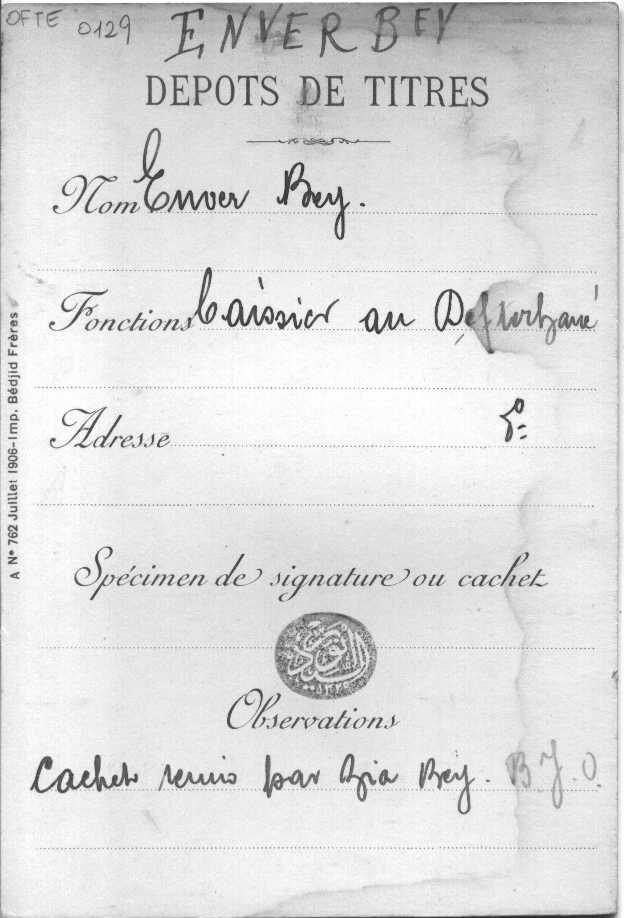 OFTE 0129 ENVER BEY
DEPOTS DE TITRES
Nom Enver Bey.
Fonctions Caissier au Defterhané
Adresse
Spécimen de signature ou cachet
Observations
Cachet remis par Zia Bey. B.J.O.
A Nº 762 Juillet 1906-Imp. Bédjid Frères